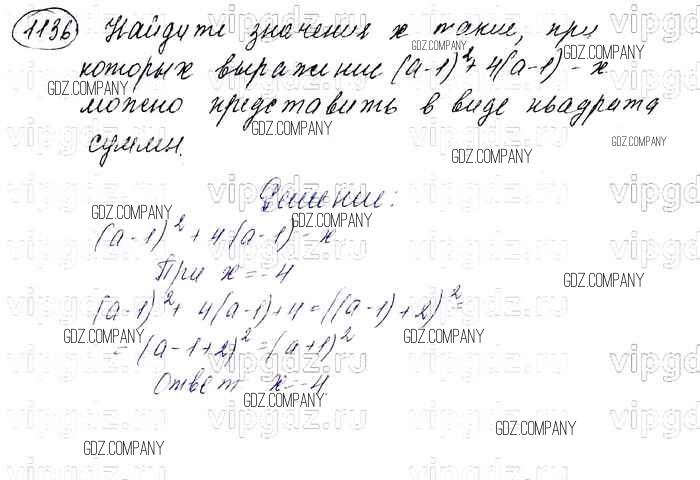 1136 Найдите значения x такие, при
которых выражение (a-1)²+4(a-1)-x
можно представить в виде квадрата
суммы.
Решение:
(a-1)²+4(a-1)-x
При x=-4
(a-1)²+4(a-1)+4=((a-1)+2)²=
=(a-1+2)²=(a+1)²
Ответ x=-4
GDZ.COMPANY
vipgdz.ru